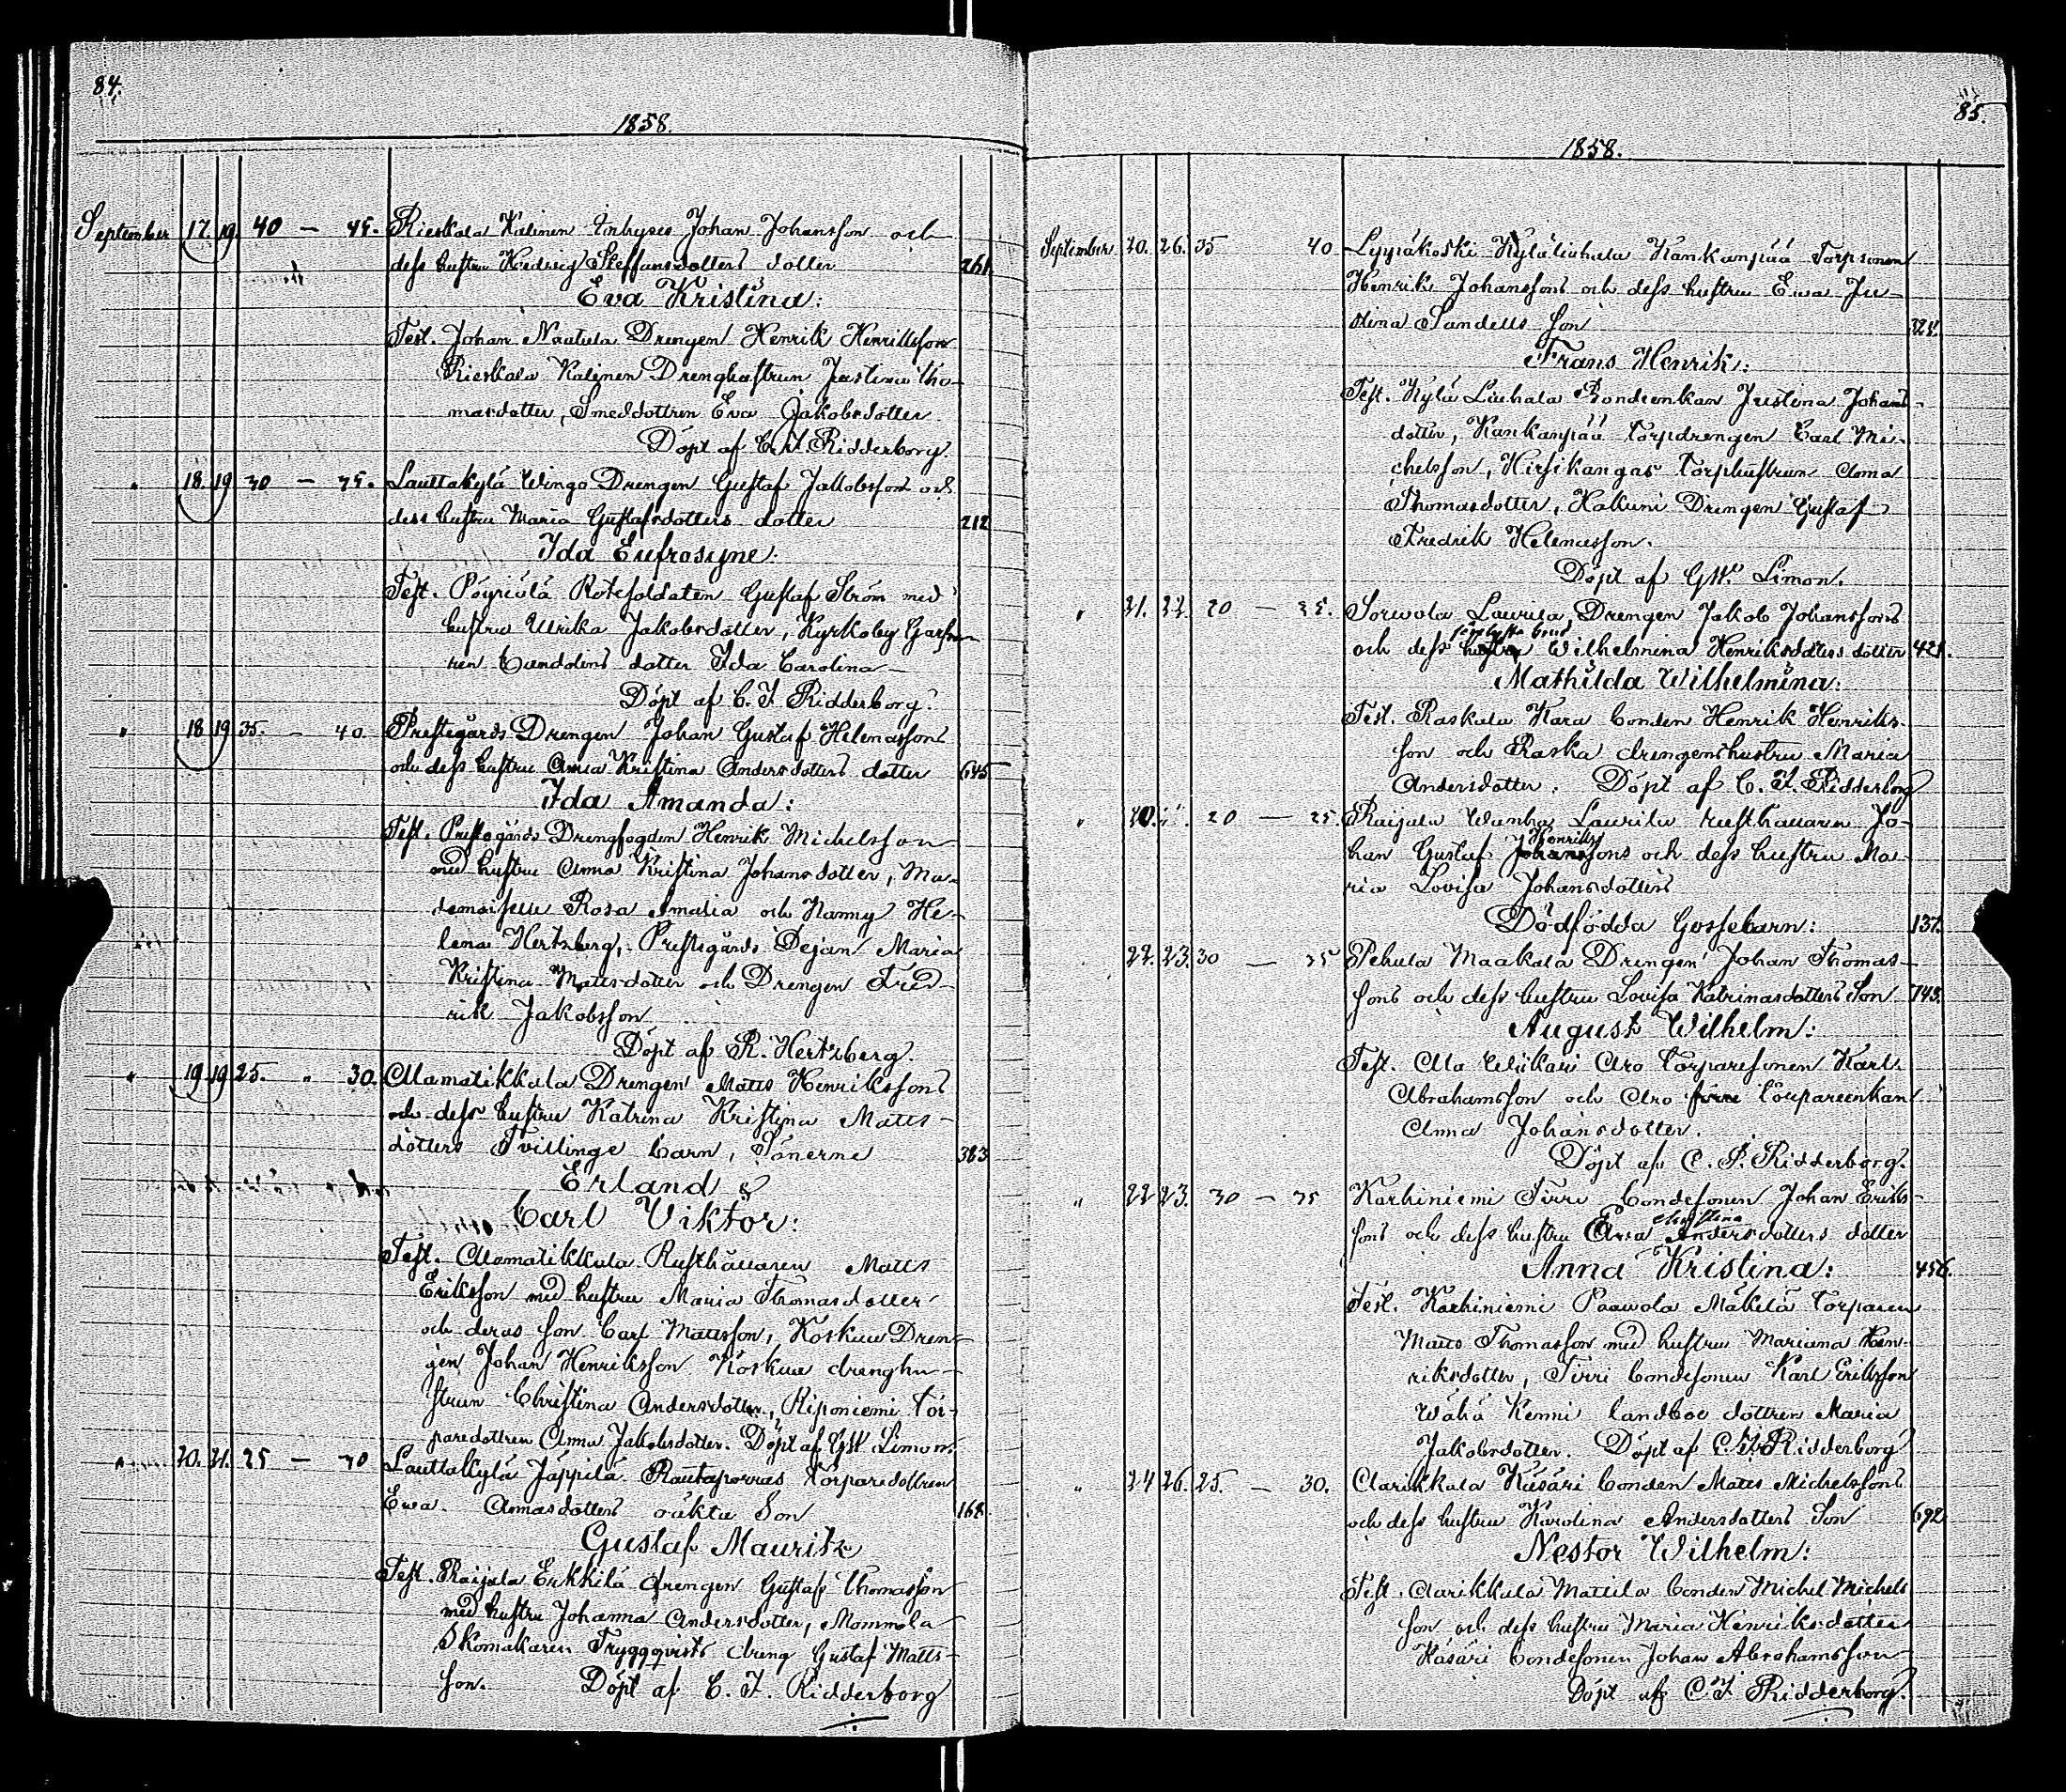 84.
1858.
September 17 19 40 — 45. Rieskala Kalinen Inhyses Johan Johansson och
dess hustru Hedvig Steffansdotters dotter 261
Eva Kristina:
Test. Johan Naatula Drengen Henrik Henriksson
Rieskala Kalinen Drenghustrun Justina Tho-
masdotter, Smeddottren Eva Jakobsdotter
Döpt af C. F. Ridderborg.
" 18 19 30 — 35. Lauttakylä Wingo Drengen Gustaf Jakobsson och
dess hustru Maria Gustafsdotters dotter 212
Ida Eufrosyne:
Test. Rotesoldaten Gustaf Ström med
hustru Ulrika Jakobsdotter, Kyrkoby
dotter Ida Carolina
Döpt af C. F. Ridderborg.
" 18 19 35. — 40 Prestegårds Drengen Johan Gustaf Helenassons
och dess hustru Anna Kristina Andersdotters dotter 645
Ida Amanda:
Test. Prestegårds Drengfogden Henrik Michelsson
med hustru Anna Kristina Johansdotter, Ma-
demoiselle Rosa Amalia och Nanny He-
lena Hertzberg, Prestegårds Dejan Maria
Kristina Mattsdotter och Drengen Fred-
rik Jakobsson
Döpt af R. Hertzberg.
" 19 19 25. " 30. Mamatikkala Drengen Matts Henrikssons
och dess hustru Katrina Kristina Matts-
dotters Tvillinge barn, Sönerne 383
Erland &
Carl Viktor:
Test. Mamatikkala Rusthållaren Matts
Eriksson med hustru Maria Thomasdotter
och deras son Carl Mattsson, Koskue Dren-
gen Johan Henriksson Koskue drenghu-
strun Christina Andersdotter, Riponiemi Tor-
paredottren Anna Jakobsdotter. Döpt af GW. Limon.
" 20. 21. 25 — 30 Lauttakylä Jäppilä Rautaporras Torparedottren
Ewa Annasdotters oäkta Son 168
Gustaf Mauritz
Test. Raijala Erkkilä drengen Gustaf Thomasson
med hustru Johanna Andersdotter, Mommola
Skomakaren Tryggqvists dreng Gustaf Matts-
son. Döpt af C. F. Ridderborg
85.
1858.
September 20. 26. 35 40 Kyläliuhala Kankanpää Torpsonen
Henrik Johanssons och dess hustru Ewa Ju-
stina Sandells Son 321.
Frans Henrik:
Test. Kylä Liuhala Bondenkan Justina Johans-
dotter, Kankanpää Torpdrengen Carl Mi-
chelsson, Hirsikangas Torphustrun Anna
Thomasdotter, Hakuni Drengen Gustaf
Fredrik Helenasson.
Döpt af GW. Limon.
" 21. 22. 20 — 25. Sorvola Laurila Drengen Jakob Johanssons
och dess Wilhelmina Henriksdotters dotter 421.
Mathilda Wilhelmina:
Test. Raskala Kara bonden Henrik Henriks-
son och Raska drengenshustru Maria
Andersdotter. Döpt af C. F. Ridderborg
" 20. " 20 — 25. Raijala Wanha Laurila rusthållaren Jo-
han Gustaf Henrikssons och dess hustru Ma-
ria Lovisa Johansdotters
Dödfödda Gossebarn: 137.
22. 23. 30 — 35 Pehula Maakala Drengen Johan Thomas-
sons och dess hustru Lovisa Katrinasdotters Son 743.
August Wilhelm:
Test. Wiikari Aro Torparesonen Karl
Abrahamsson och Aro Torpareenkan
Anna Johansdotter.
Döpt af C. F. Ridderborg.
" 22 23. 30 — 35 Karhiniemi Firri bondesonen Johan Eriks-
sons och dess hustru Eva Christina Andersdotters dotter
Anna Kristina: 456.
Test. Karhiniemi Paawola Mäkelä Torparen
Matts Thomasson med hustru Mariana Hen-
riksdotter, Firri bondesonen Karl Eriksson
Wähä Kenni landboe dottren Maria
Jakobsdotter. Döpt af C. F. Ridderborg
" 24 26. 25. — 30. Clarikkala Käsäri bonden Matts Michelssons
och dess hustru Karolina Andersdotters Son 692
Nestor Wilhelm:
Test. Clarikkala Mattila bonden Michel Michels
son och dess hustru Maria Henriksdotter
Käsäri bondesonen Johan Abrahamsson
Döpt af C. F. Ridderborg.